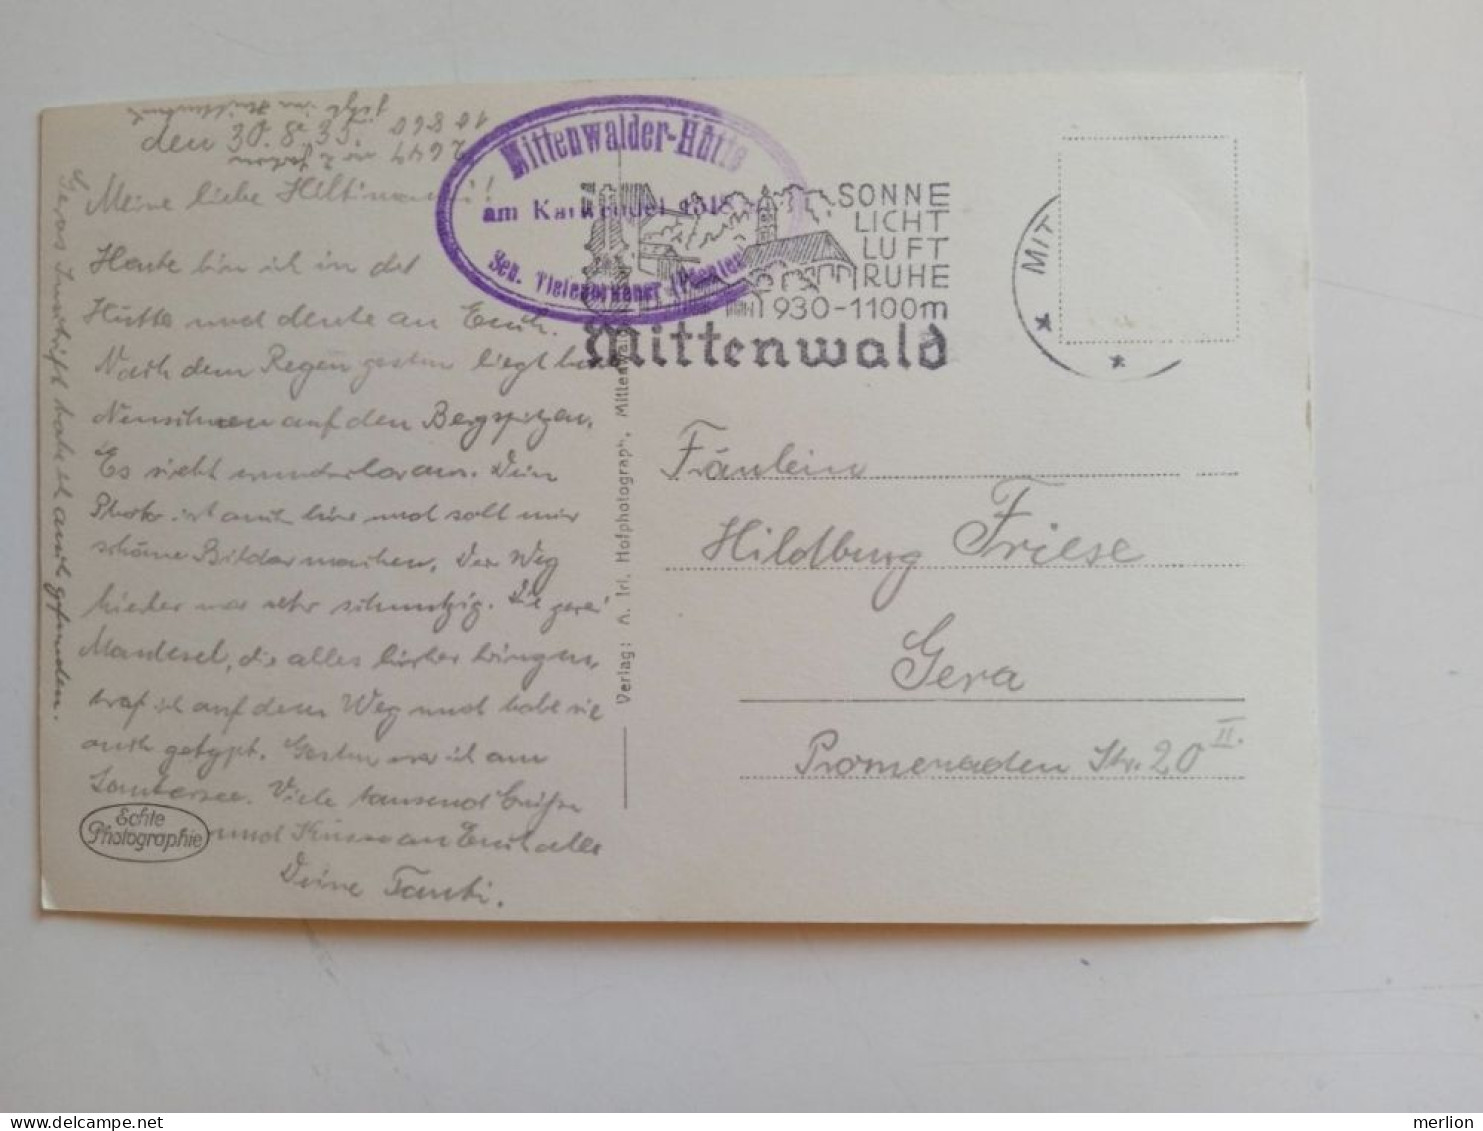 den 30. 8. 35.
Meine liebe
Heute bin ich in der
Hütte und denke an Euch.
Nach dem Regen gestern liegt
Neuschnee auf den Bergspitzen.
Es sieht wunderbar aus. Dein
Photo ist auch hier und soll mir
schöne Bilder machen. Der Weg
hierher war sehr schmutzig. Die
Maulesel, die alles hierher bringen,
traf ich auf dem Weg und habe sie
auch getypt. Gestern war ich am
Lautersee. Viele tausend Grüße
und Küsse an Euch alle
Deine Tanti.
Geras Inschrift habe ich auch gefunden.
10860
2644
Mittenwalder-Hütte
am Karwendel 1518
Echte
Photographie
Verlag: A. Irl. Hofphotograph, Mittenwald
SONNE
LICHT
LUFT
RUHE
930-1100m
Mittenwald
MIT
Fräulein
Hildburg Friese
Gera
Promenaden Str. 20 II.
merlion